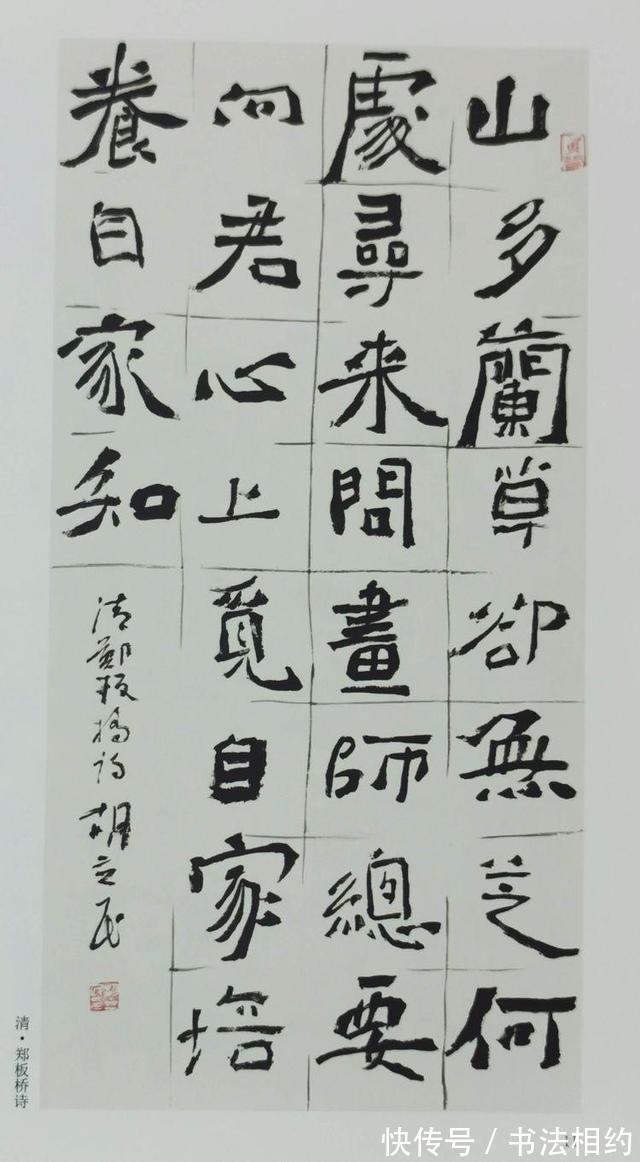 山多蘭草卻無芝何
處尋來問畫師總要
向君心上覓自家培
養自家知
清鄭板橋詩 胡立民
清·郑板桥诗
快传号/书法相约